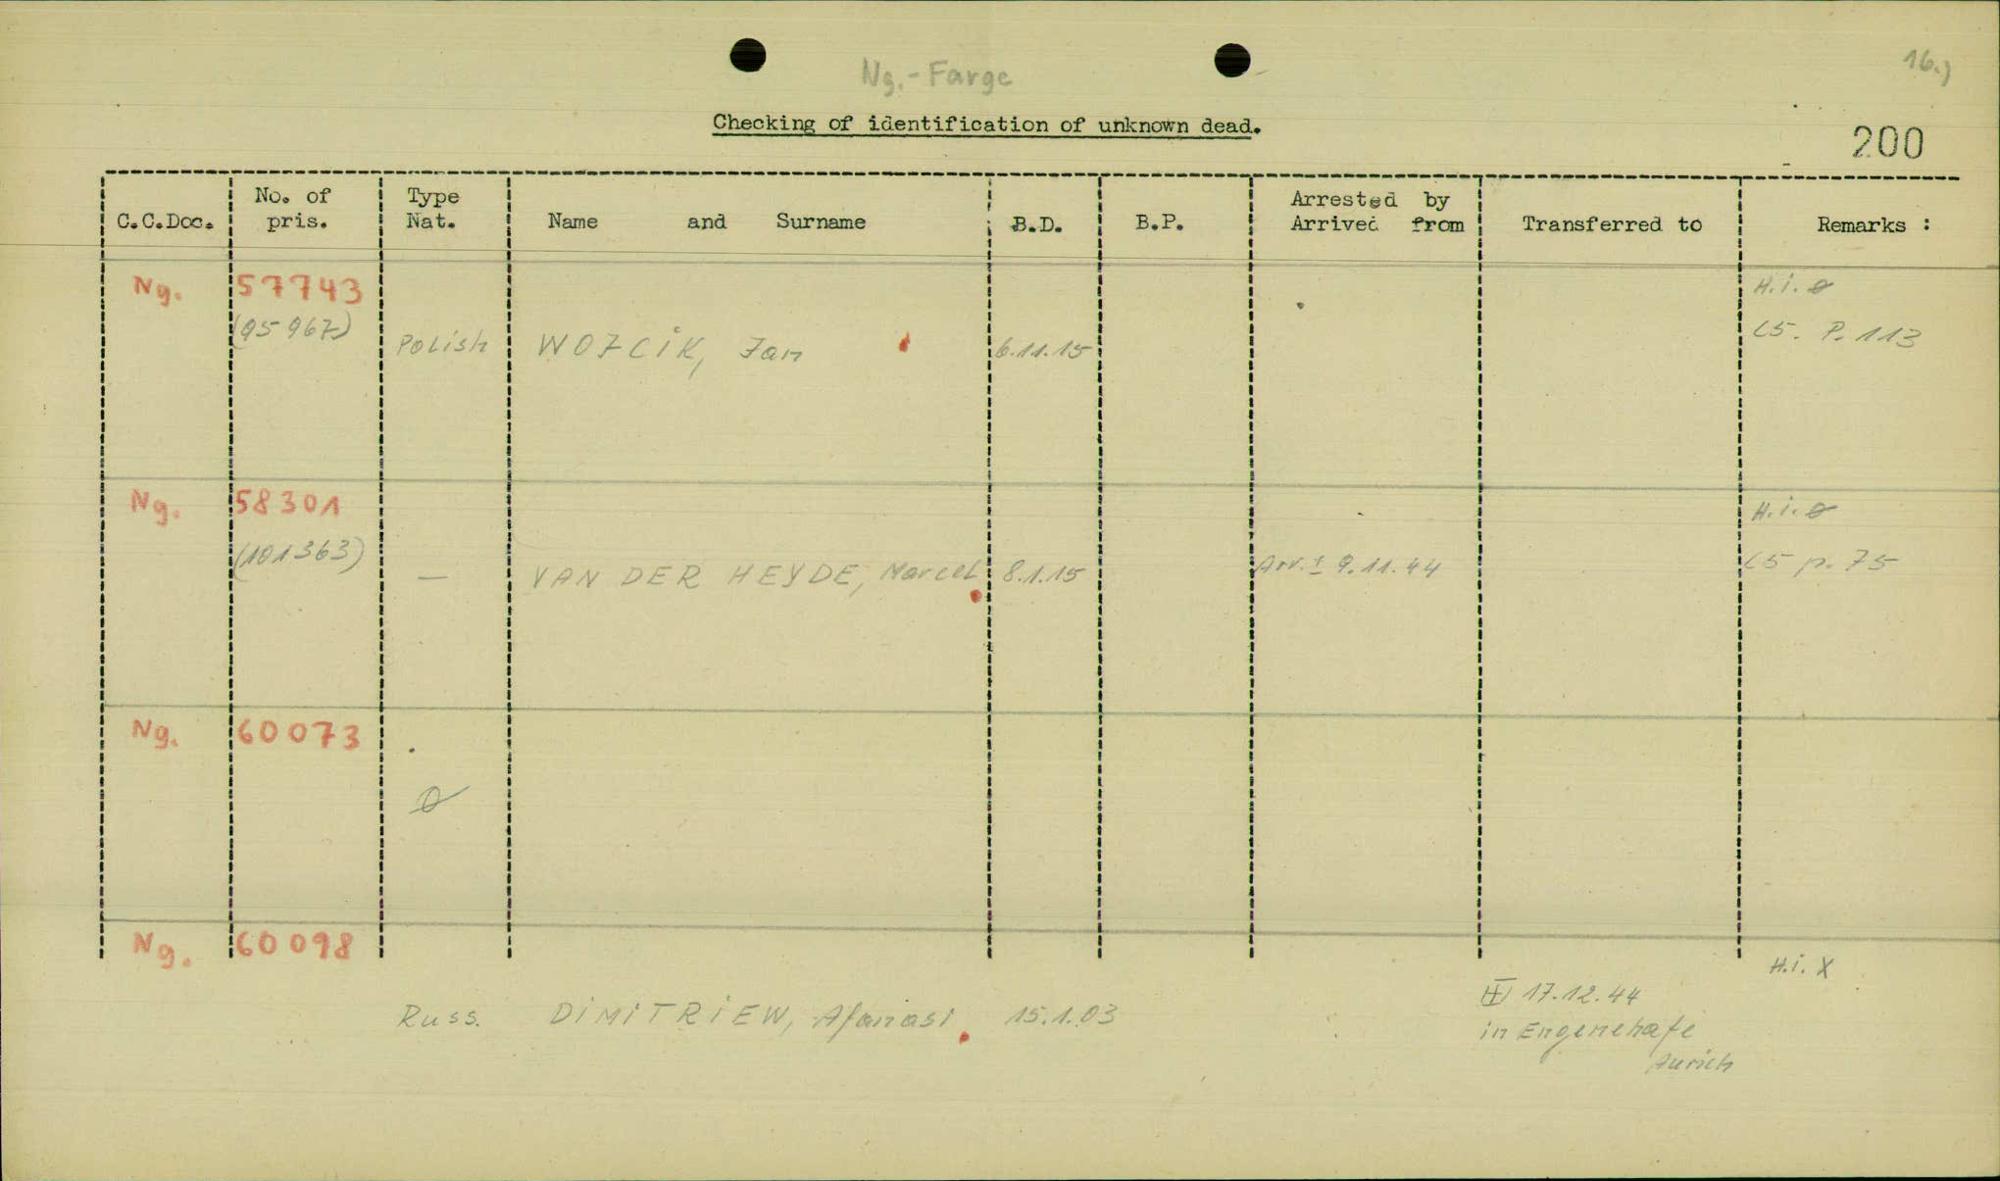 16.)
Ng.-Farge
Checking of identification of unknown dead.
200
C.C.Doc. No. of pris. Type Nat. Name and Surname B.D. B.P. Arrested by Arrived from Transferred to Remarks :
Ng. 57743 H.i. ø
(95 967) Polish WOJCIK, Jan 6.11.15 C5. P. 113
Ng. 58301 H.i. ø
(101363) — VAN DER HEYDE, Marcel 8.1.15 Arr. ± 9.11.44 C5 p. 75
Ng. 60073
ø
Ng. 60098 H.i. X
Russ. DIMITRIEW, Afanasi 15.1.03 17.12.44
in Engenehafe
Aurich